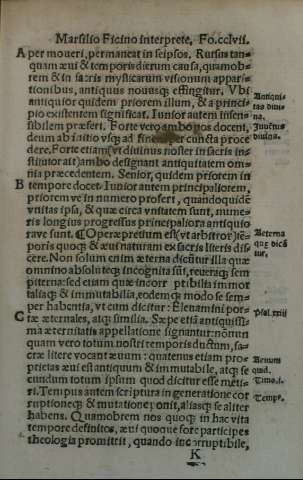 Marsilio Ficino interprete, Fo.cclvii.
A per moueri, permaneat in seipsos. Rursus tan-
quam æui & temporis dierum causa, quamob-
rem & in sacris mysticarum visionum appari-
tionibus, antiquus nouusq; effingitur. Vbi
antiquior quidem priorem illum, & a princi-
pio existentem significat. Iunior autem insen-
sibilem præfert. Forte vero ambo nos docent,
deum ab initio vsq; ad per cuncta proce
dere. Forte etiam (vt diuinus noster in sacris in
stituit) ambo designant antiquitatem om-
nia præcedentem. Senior, quidem priorem in
B tempore docet. Iunior autem principaliorem,
priorem ve in numero profert, quandoquidē
vnitas ipsa, & quæ circa vnitatem sunt, nume-
ris longius progressus principaliora antiquio
ra ve sunt. Operæpretium est (vt arbitror) tē-
poris quoq; & æui naturam ex sacris literis dis
cere. Non solum enim æterna dicūtur illa quæ
omnino absoluteq; incognita sūt, reueraq; sem
piterna: sed etiam quæ incorruptibilia immor
talia & immutabilia, eodemq; modo semp
per habentia, vt cum dicitur: Eleuamini por-
C tæ æternales, atq; similia. Sæpe etiā antiquissi-
ma æternitatis appellatione signantur: nōnun
quam vero totum nostri temporis ductum, sa-
cræ litere vocant æuum: quatenus etiam pro-
prietas æui est antiquum & immutabile, atq; se
cundum totum ipsum quod dicitur esse meti-
ri. Tempus autem scriptura in generatione cor
ruptioneq; & mutatione ponit, aliasq; se aliter
habens. Quamobrem nos quoq; in hac vita
tempore definitos, æui quoque fore participes
theologia promittit, quando incorruptibile,
K
Antiqui-
tas diuina.
Iuuētus
diuina.
Æterna
que dicā
tur.
Psal. xxiii
Æeuum
quid.
Timo. i.
Temps.